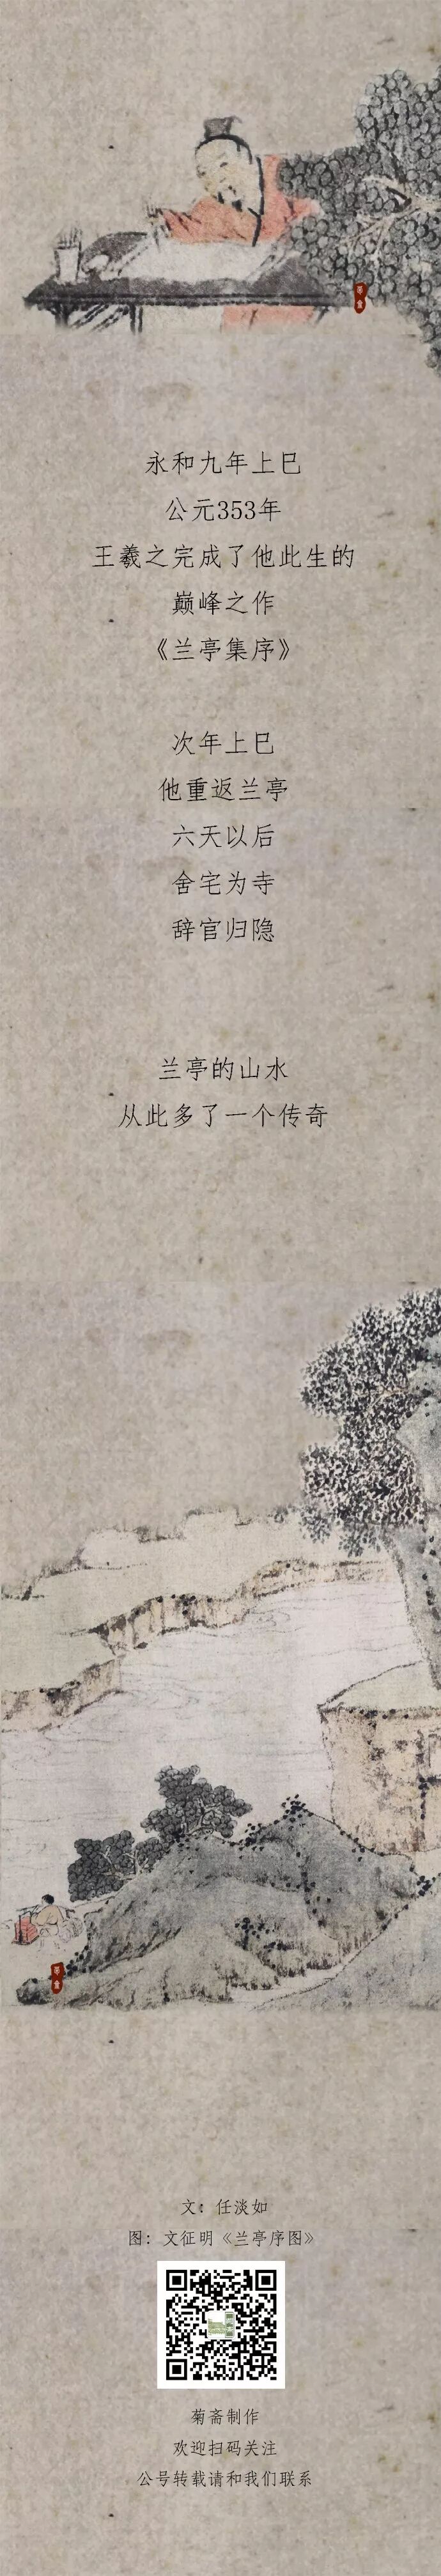 永和九年上巳
公元353年
王羲之完成了他此生的
巅峰之作
《兰亭集序》
次年上巳
他重返兰亭
六天以后
舍宅为寺
辞官归隐
兰亭的山水
从此多了一个传奇
文：任淡如
图：文征明《兰亭序图》
菊斋制作
欢迎扫码关注
公号转载请和我们联系